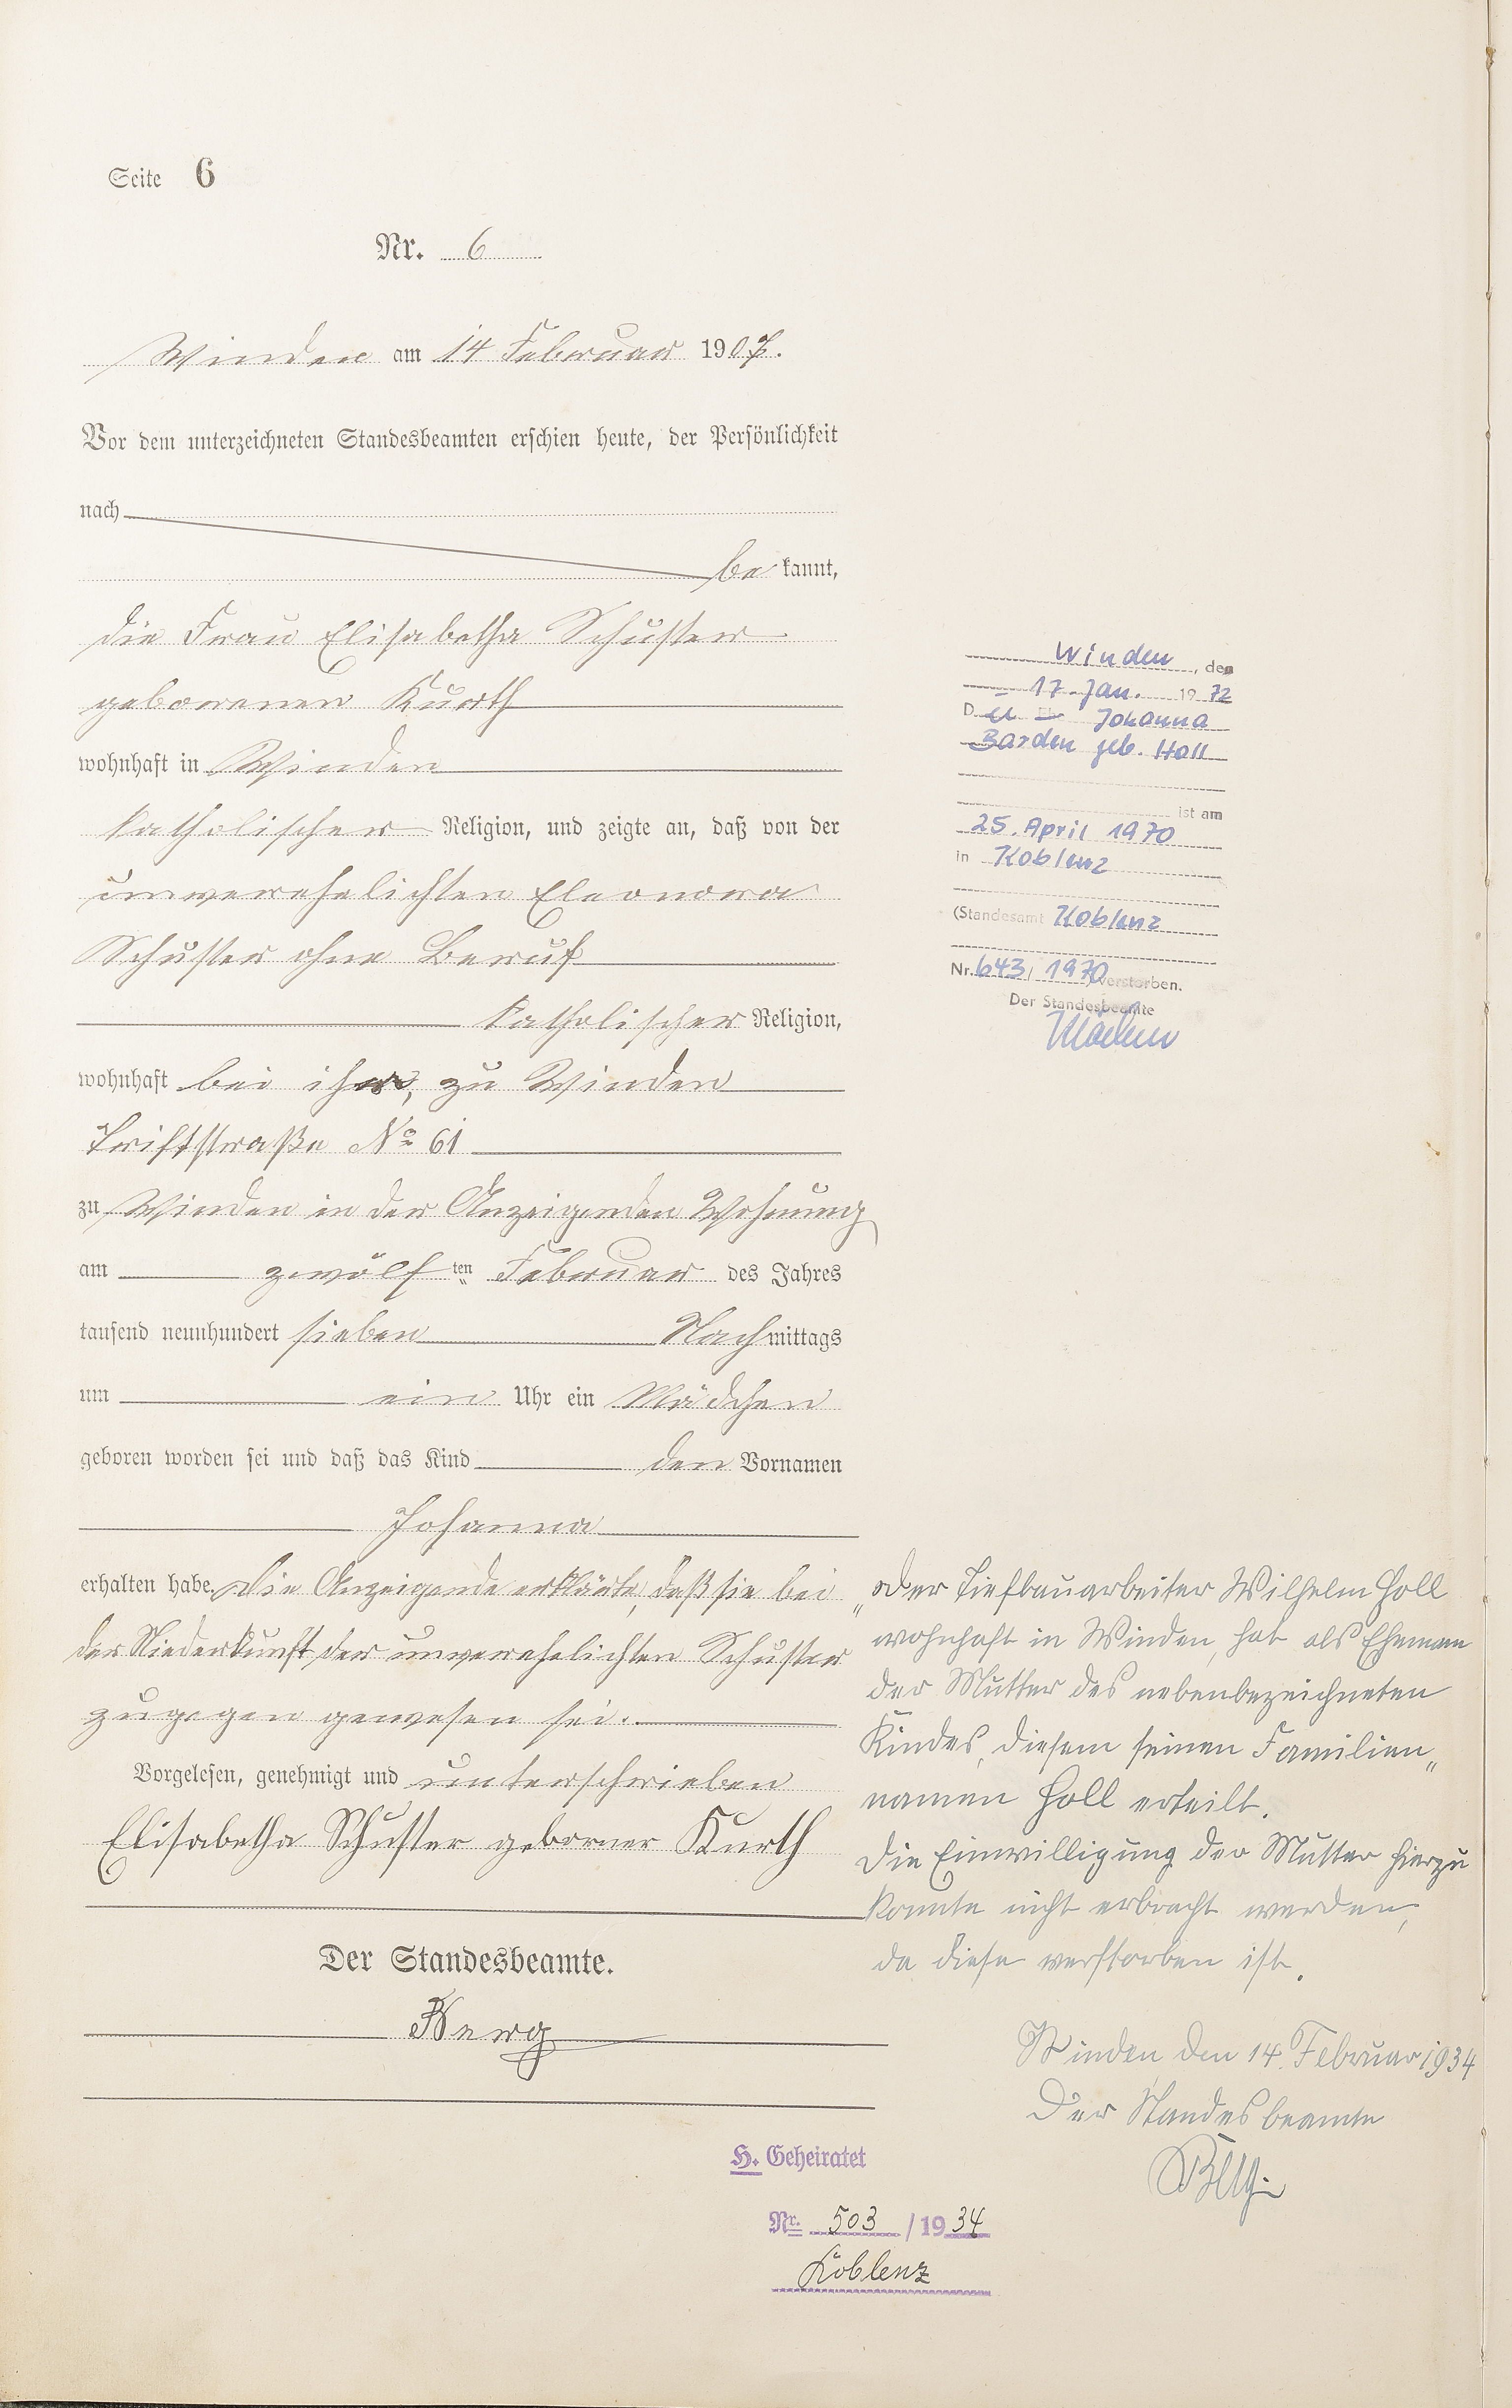 Seite 6
Nr. 6
Winden am 14 Februar 1907.
Vor dem unterzeichneten Standesbeamten erschien heute, der Persönlichkeit
nach
be kannt,
die Frau Elisabetha Schuster
geborener Kurth
wohnhaft in Winden
katholischer Religion, und zeigte an, daß von der
unverehelichten Eleonora
Schuster ohne Beruf
katholischer Religion,
wohnhaft bei ihr, zu Winden
Triftstraße No 61
zu Winden in der Anzeigenden Wohnung
am zwölf ten Februar des Jahres
tausend neunhundert sieben Nachmittags
um ein Uhr ein Mädchen
geboren worden sei und daß das Kind den Vornamen
Johanna
erhalten habe. Die Anzeigende erklärte, daß sie bei
der Niederkunft der unverehelichten Schuster
zugegen gewesen sei.
Vorgelesen, genehmigt und unterschrieben
Elisabetha Schuster geborner Kurth
Der Standesbeamte.
H. Geheiratet
Nr. 503 / 1934
Koblenz
Winden, den
17. Jan. 1972
D Johanna
Barden geb. Holl
ist am
25. April 1970
in Koblenz
(Standesamt Koblenz
Nr. 643 / 1970 verstorben.
Der Standesbeamte
"Der Tiefbauarbeiter Wilhelm Holl
wohnhaft in Winden, hat als Ehemann
der Mutter des nebenbezeichneten
Kindes, diesem seinen Familien„
namen Holl erteilt.
Die Einwilligung der Mutter hierzu
konnte nicht erbracht werden,
da diese verstorben ist.
Winden den 14. Februar 1934
Der Standesbeamte